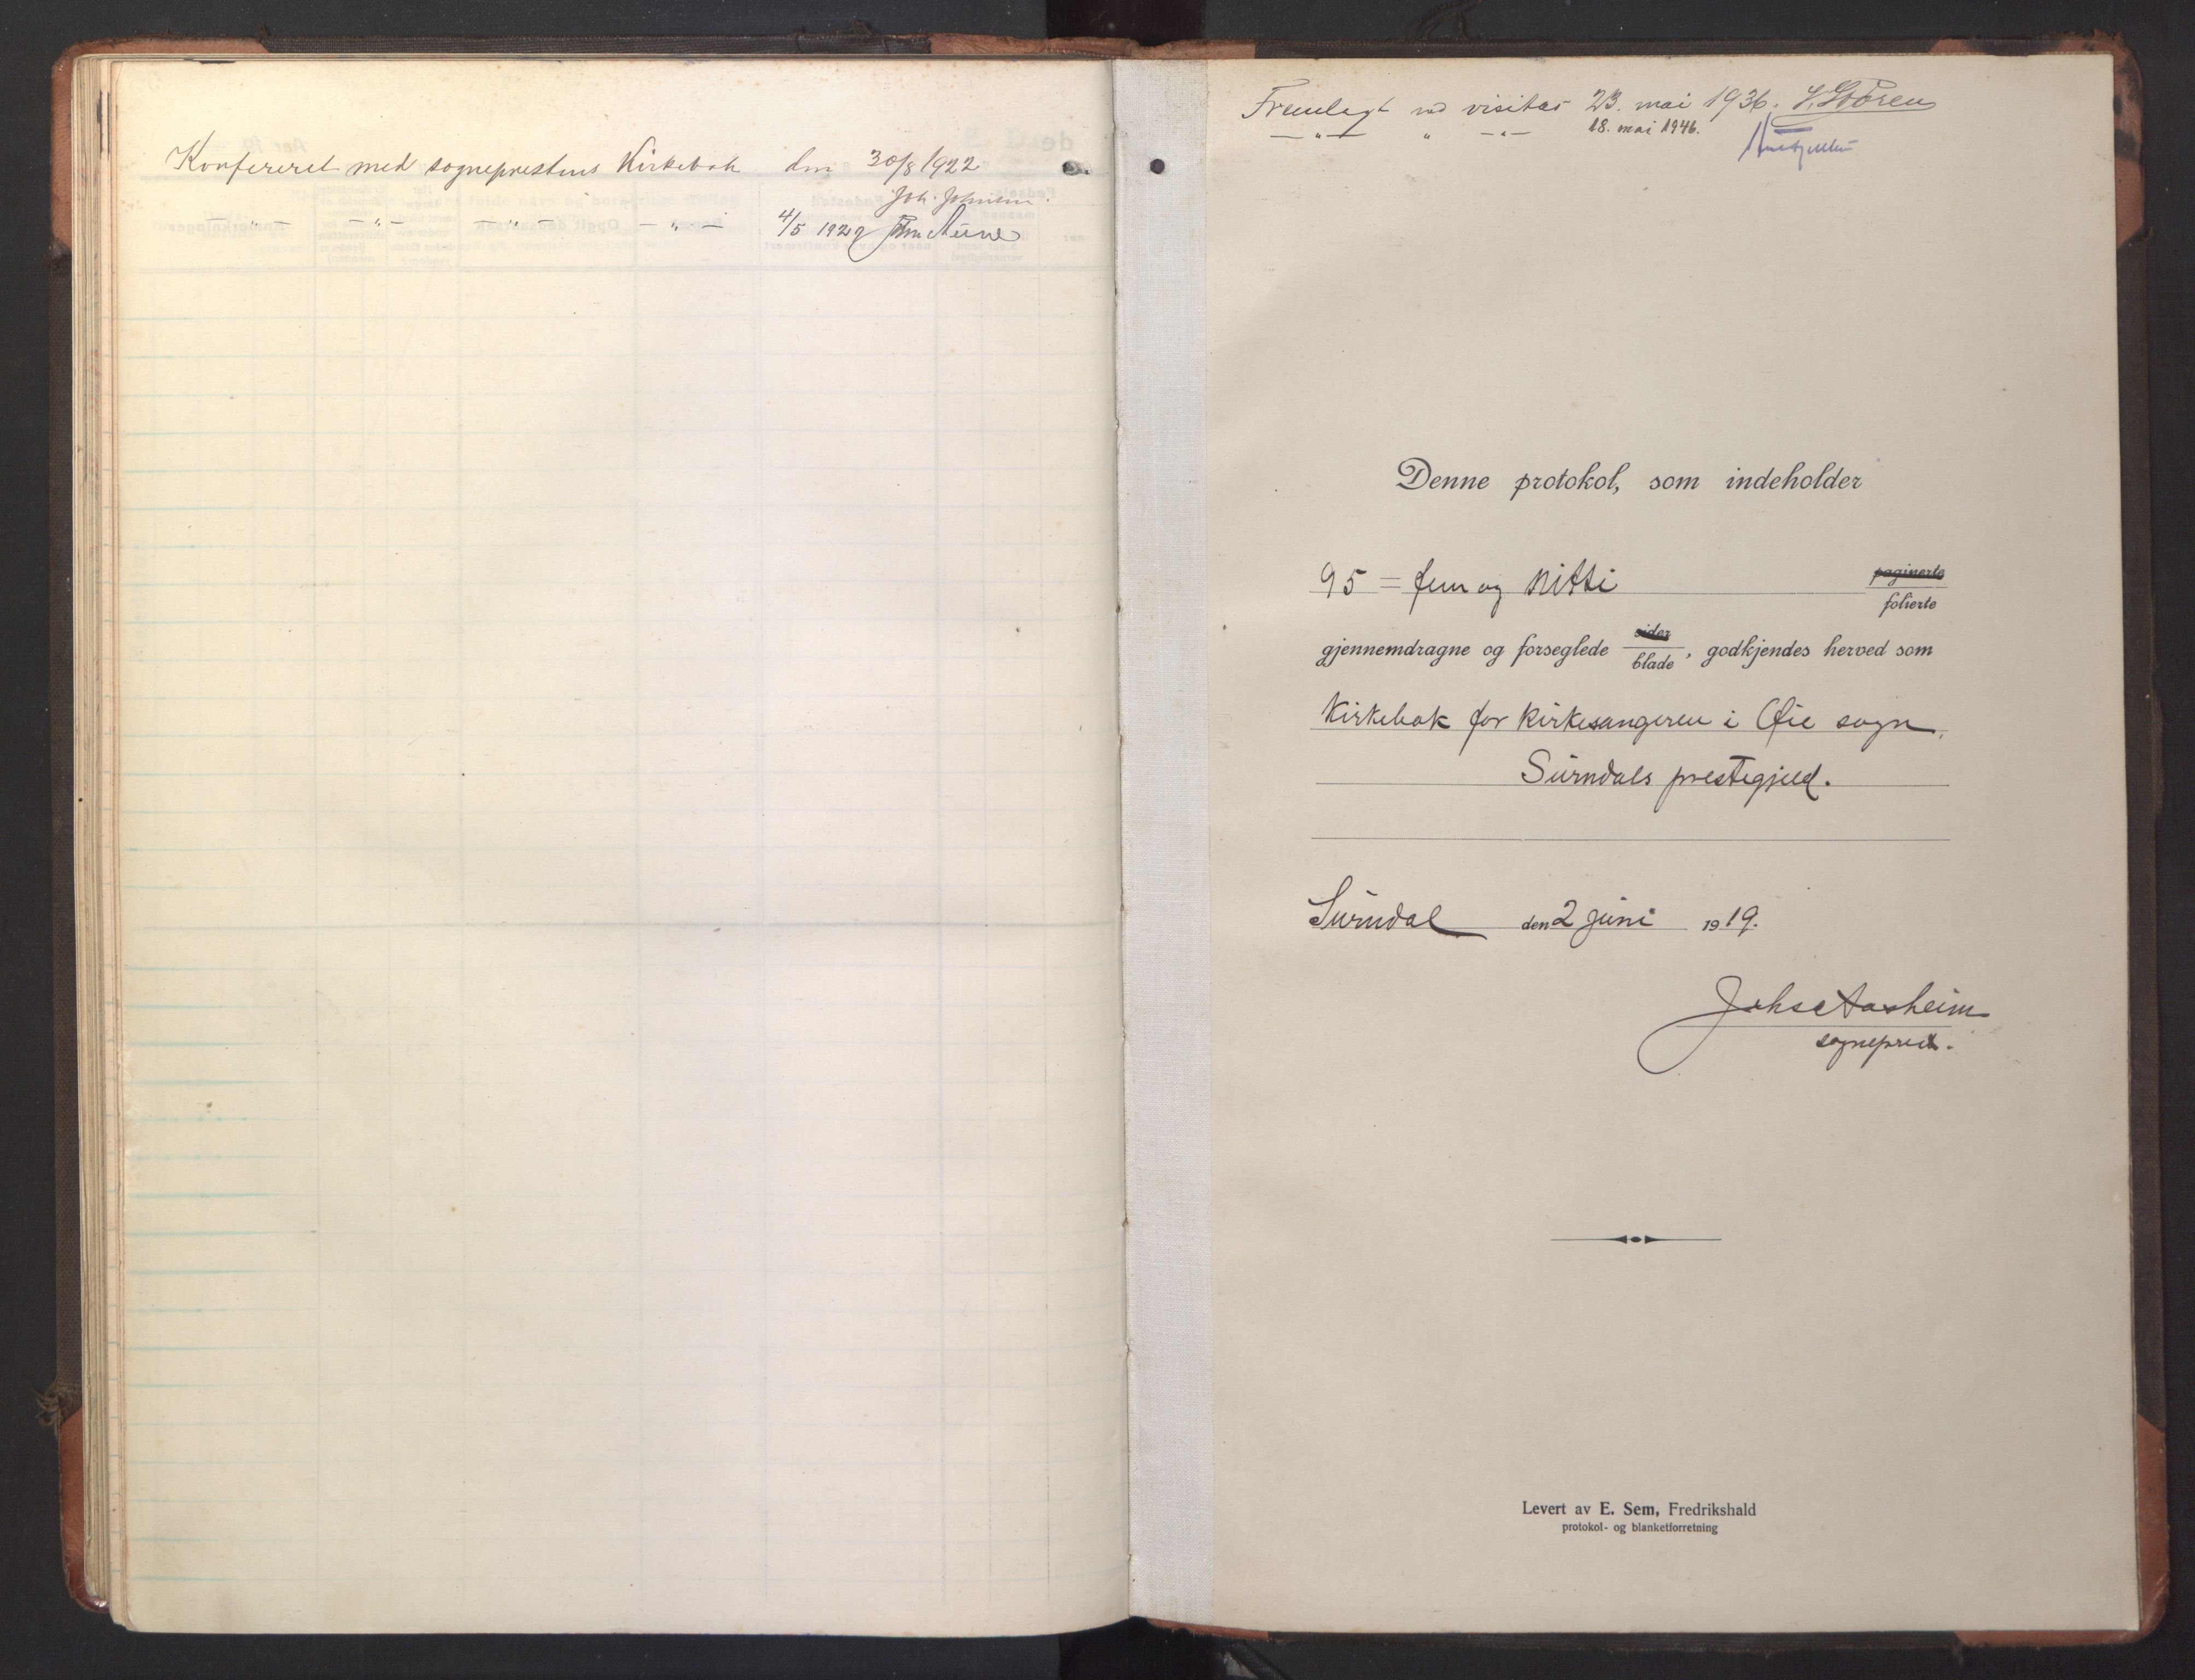 Konfereret med sogneprestens Kirkebok den 30/8 1922
Joh. Johnsen.
— " — — " — — " — — " — 4/5 1929 Aune
Fremlagt ved visitas 23. mai 1936. Støren
— " — " — " — 18. mai 1946.
Denne protokol, som indeholder
95 = fem og nitti paginerte
folierte
gjennemdragne og forseglede sider
blade, godkjendes herved som
Kirkebok for kirkesangeren i Øie sogn,
Surndals prestegjeld.
Surndal den 2 juni 1919.
Johs Aasheim
sogneprest.
Levert av E. Sem, Fredrikshald
protokol- og blanketforretning